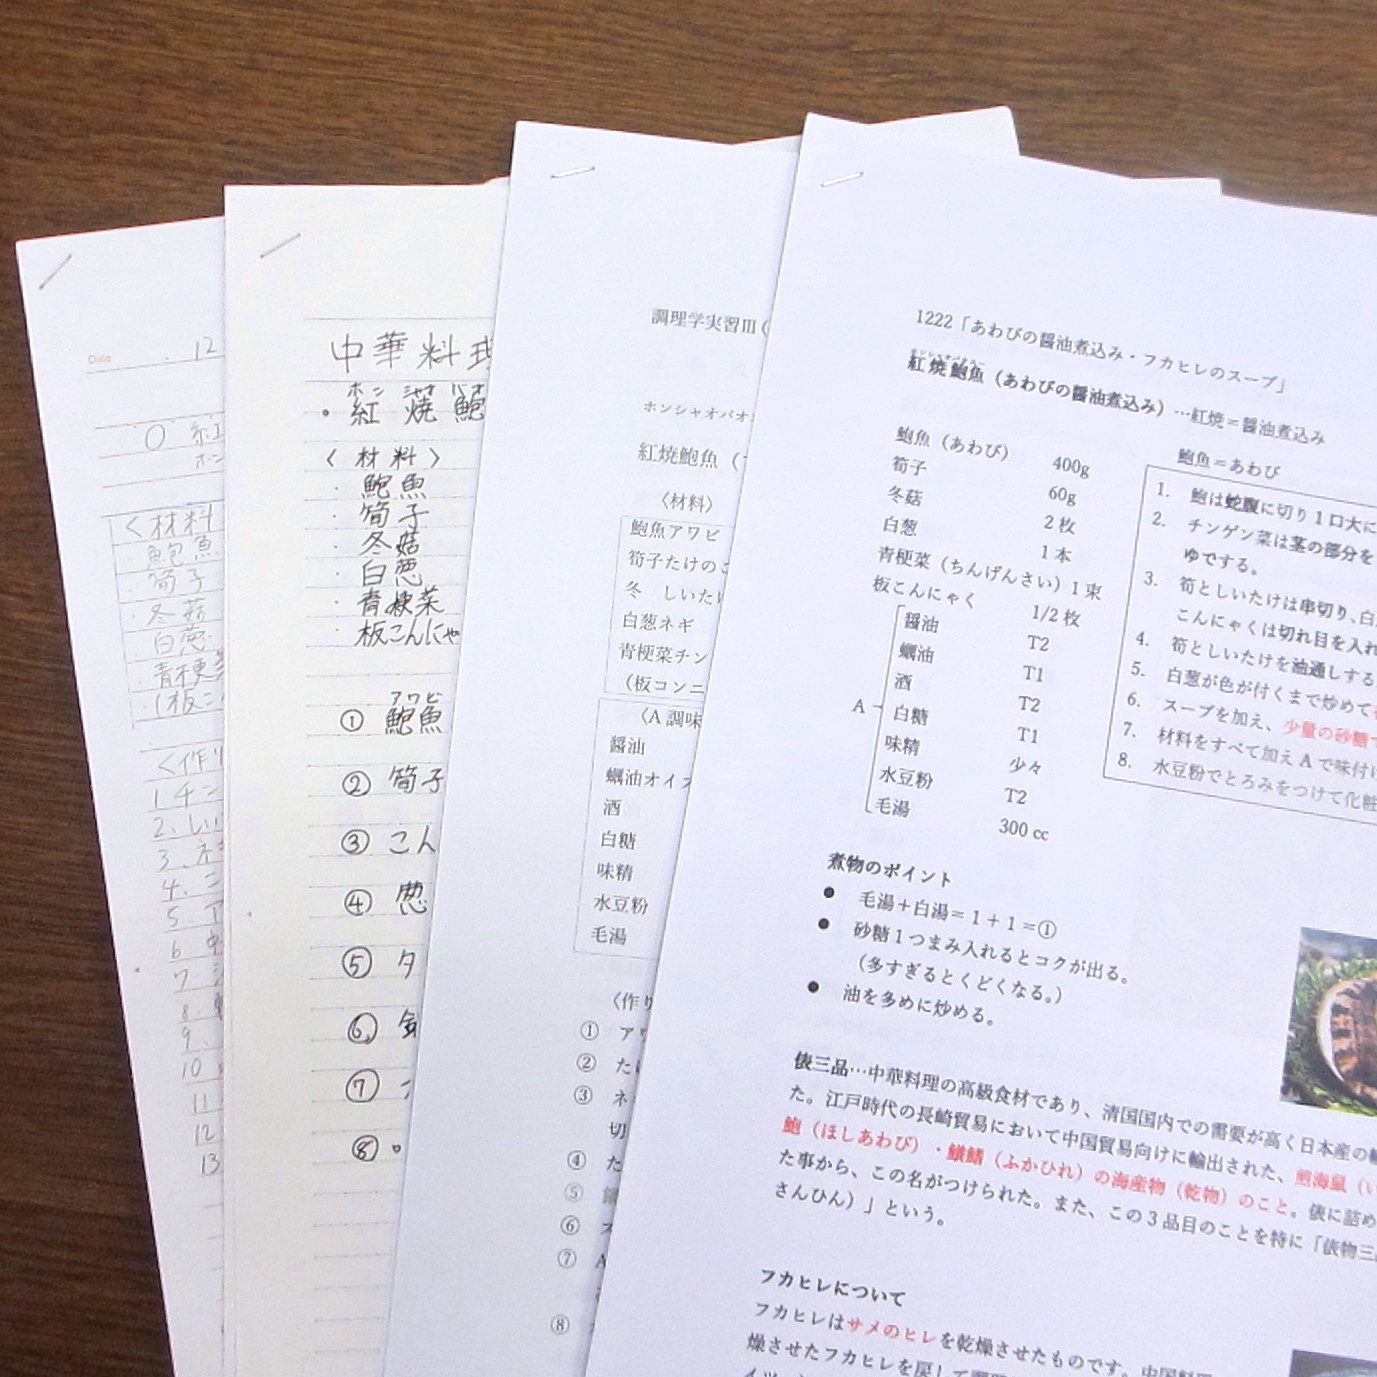 Date . 12
〇 紅
ホン
<材料
・鮑魚
・筍子
・冬菇
・白葱
・青梗菜
・(板こ
<作り
1 チン
2. しい
3. ネ
4. こ
5. ア
6
7.
8.
9.
10
11
12
13
中華料理
・紅焼鮑
ホン シャオ パオ
〈材料〉
・鮑魚
・筍子
・冬菇
・白葱
・青梗菜
・板こんにゃ
アワビ
① 鮑魚
② 筍子
③ こん
④ 葱
⑤ タ
⑥
⑦
⑧
調理学実習Ⅲ(
ホンシャオパオ
紅焼鮑魚（
〈材料〉
鮑魚アワビ
筍子たけのこ
冬 しいたけ
白葱ネギ
青梗菜チン
（板コンニ
〈A 調味
醤油
蠣油オイス
酒
白糖
味精
水豆粉
毛湯
〈作り
① アワ
② たけ
③ ネギ
切
④ た
⑤
⑥ ス
⑦ A
⑧
1222「あわびの醤油煮込み・フカヒレのスープ」
紅焼鮑魚（あわびの醤油煮込み）…紅焼＝醤油煮込み
鮑魚＝あわび
鮑魚（あわび） 400g
筍子 60g
冬菇 2 枚
白葱 1 本
青梗菜（ちんげんさい）1 束
板こんにゃく 1/2 枚
A
醤油 T2
蠣油 T1
酒 T2
白糖 T1
味精 少々
水豆粉 T2
毛湯 300 cc
1. 鮑は蛇腹に切り 1 口大に
2. チンゲン菜は茎の部分を
ゆでする。
3. 筍としいたけは串切り、白
こんにゃくは切れ目を入れ
4. 筍としいたけを油通しする
5. 白葱が色が付くまで炒めて
6. スープを加え、少量の砂糖で
7. 材料をすべて加え A で味付け
8. 水豆粉でとろみをつけて化粧
煮物のポイント
● 毛湯＋白湯＝1＋1＝①
● 砂糖 1 つまみ入れるとコクが出る。
（多すぎるとくどくなる。）
● 油を多めに炒める。
俵三品…中華料理の高級食材であり、清国国内での需要が高く日本産の
た。江戸時代の長崎貿易において中国貿易向けに輸出された、煎海鼠（い
鮑（ほしあわび）・鱶鰭（ふかひれ）の海産物（乾物）のこと。俵に詰め
た事から、この名がつけられた。また、この 3 品目のことを特に「俵物三品
さんひん）」という。
フカヒレについて
フカヒレはサメのヒレを乾燥させたものです。中国料理
燥させたフカヒレを戻して調理